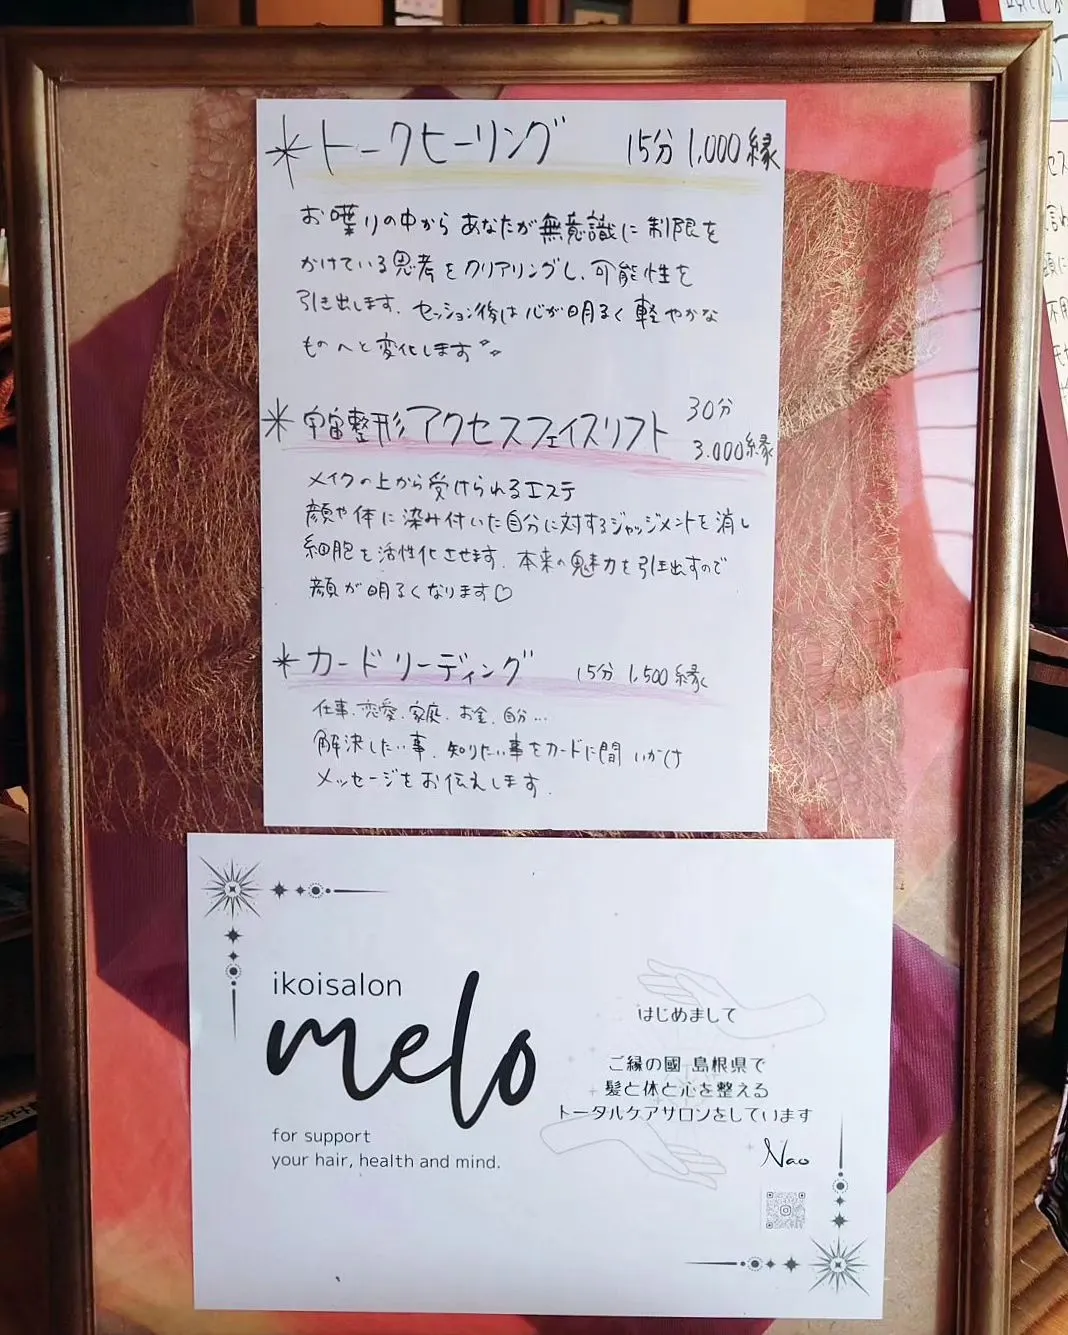 *トークヒーリング 15分 1,000縁
お喋りの中からあなたが無意識に制限を
かけている思考をクリアリングし、可能性を
引き出します。セッション後は心が明るく軽やかな
ものへと変化します
*宇宙整形アクセスフェイスリフト 30分
3.000縁
メイクの上から受けられるエステ
顔や体に染み付いた自分に対するジャッジメントを消し
細胞を活性化させます。本来の魅力を引き出すので
顔が明るくなります♡
*カードリーディング 15分 1,500縁
仕事、恋愛、家庭、お金、自分...
解決したい事、知りたい事をカードに問いかけ
メッセージをお伝えします。
ikoisalon
melo
for support
your hair, health and mind.
はじめまして
ご縁の國 島根県で
髪と体と心を整える
トータルケアサロンをしています
Nao